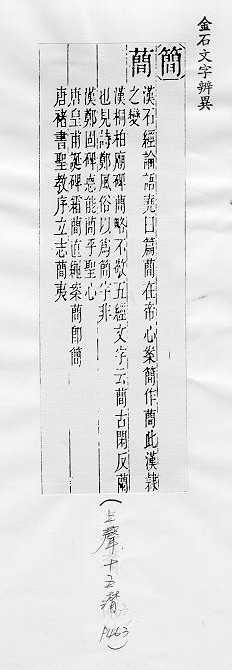 金石文字辨異
簡 蕳
漢石經論語堯曰篇蕳在帝心案簡作蕳此漢隸
之變
漢桐柏廟碑蕳略不敬五經文字云蕳古閑反蘭
也見詩鄭風俗以爲簡字非
漢鄭固碑忠能蕳乎聖心
唐皇甫誕碑霜蕳直繩案蕳卽簡
唐褚書聖教序立志蕳夷
(上聲十五潸 P463)